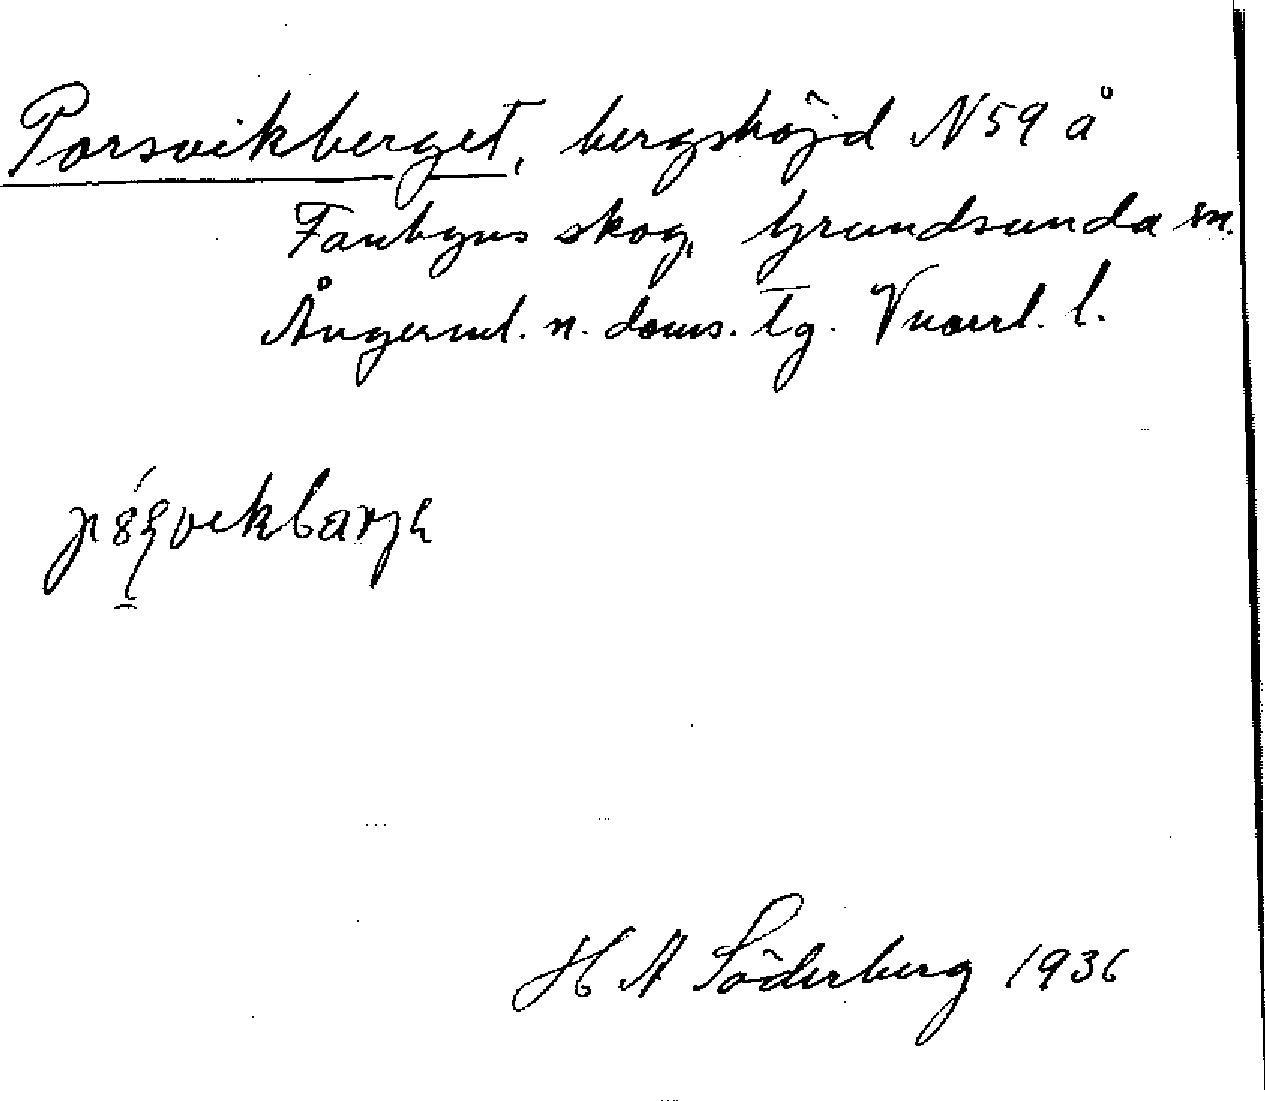 Porsvikberget, bergshöjd N 59 å
Fanbyns skog, Grundsunda sn.
Ångerml. n. doms. tg. Vnorrl. l.
H A Söderberg 1936